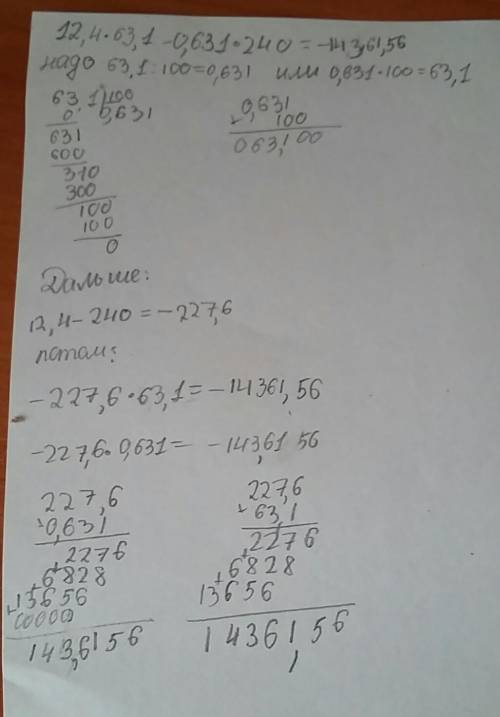 12,4·63,1-0,631·240=-143,61,56
надо 63,1:100=0,631 или 0,631·100=63,1
63,1 100
0 0,631
631
600
310
300
100
100
0
0,631
100
063,100
Дальше:
12,4-240=-227,6
потом:
-227,6·63,1=-14361,56
-227,6·0,631= -143,61 56
227,6
0,631
2276
+6828
+13656
00000
143,6156
227,6
63,1
2276
+6828
13656
14361,56